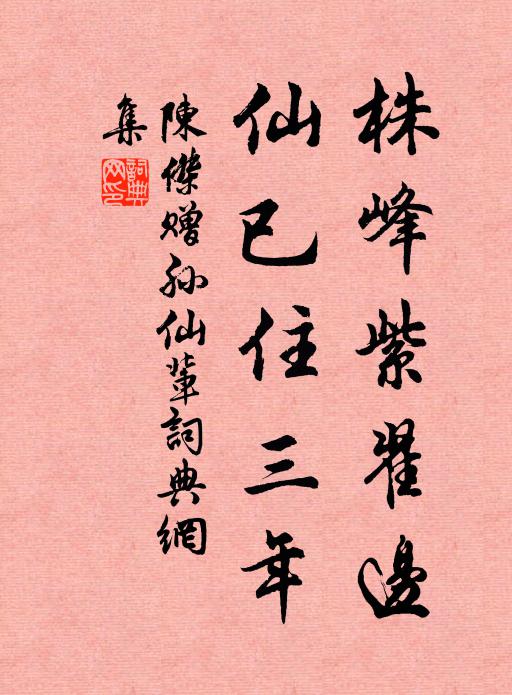 株峰紫翟邊
仙已住三年
陳傑贈孙仙輩詞典網
集
詞典網印